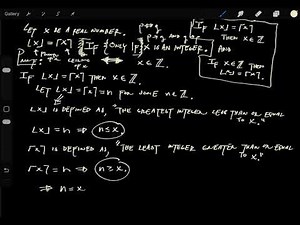 Gallery
LET X BE A REAL NUMBER.
⌊X⌋ = ⌈X⌉ IF & ONLY IF X IS AN INTEGER.
P ⟺ Q
X ∈ ℤ.
IF ⌊X⌋ = ⌈X⌉
THEN X ∈ ℤ
AND
IF X ∈ ℤ THEN
⌊X⌋ = ⌈X⌉.
PROOF:
IF ⌊X⌋ = ⌈X⌉ THEN X ∈ ℤ.
LET ⌊X⌋ = ⌈X⌉ = n FOR SOME n ∈ ℤ.
⌊X⌋ IS DEFINED AS, "THE GREATEST INTEGER LESS THAN OR EQUAL
TO X."
⌊X⌋ = n ⟹ n ≤ X.
⌈X⌉ IS DEFINED AS, "THE LEAST INTEGER GREATER THAN OR EQUAL
TO X."
⌈X⌉ = n ⟹ n ≥ X.
⟹ n = X